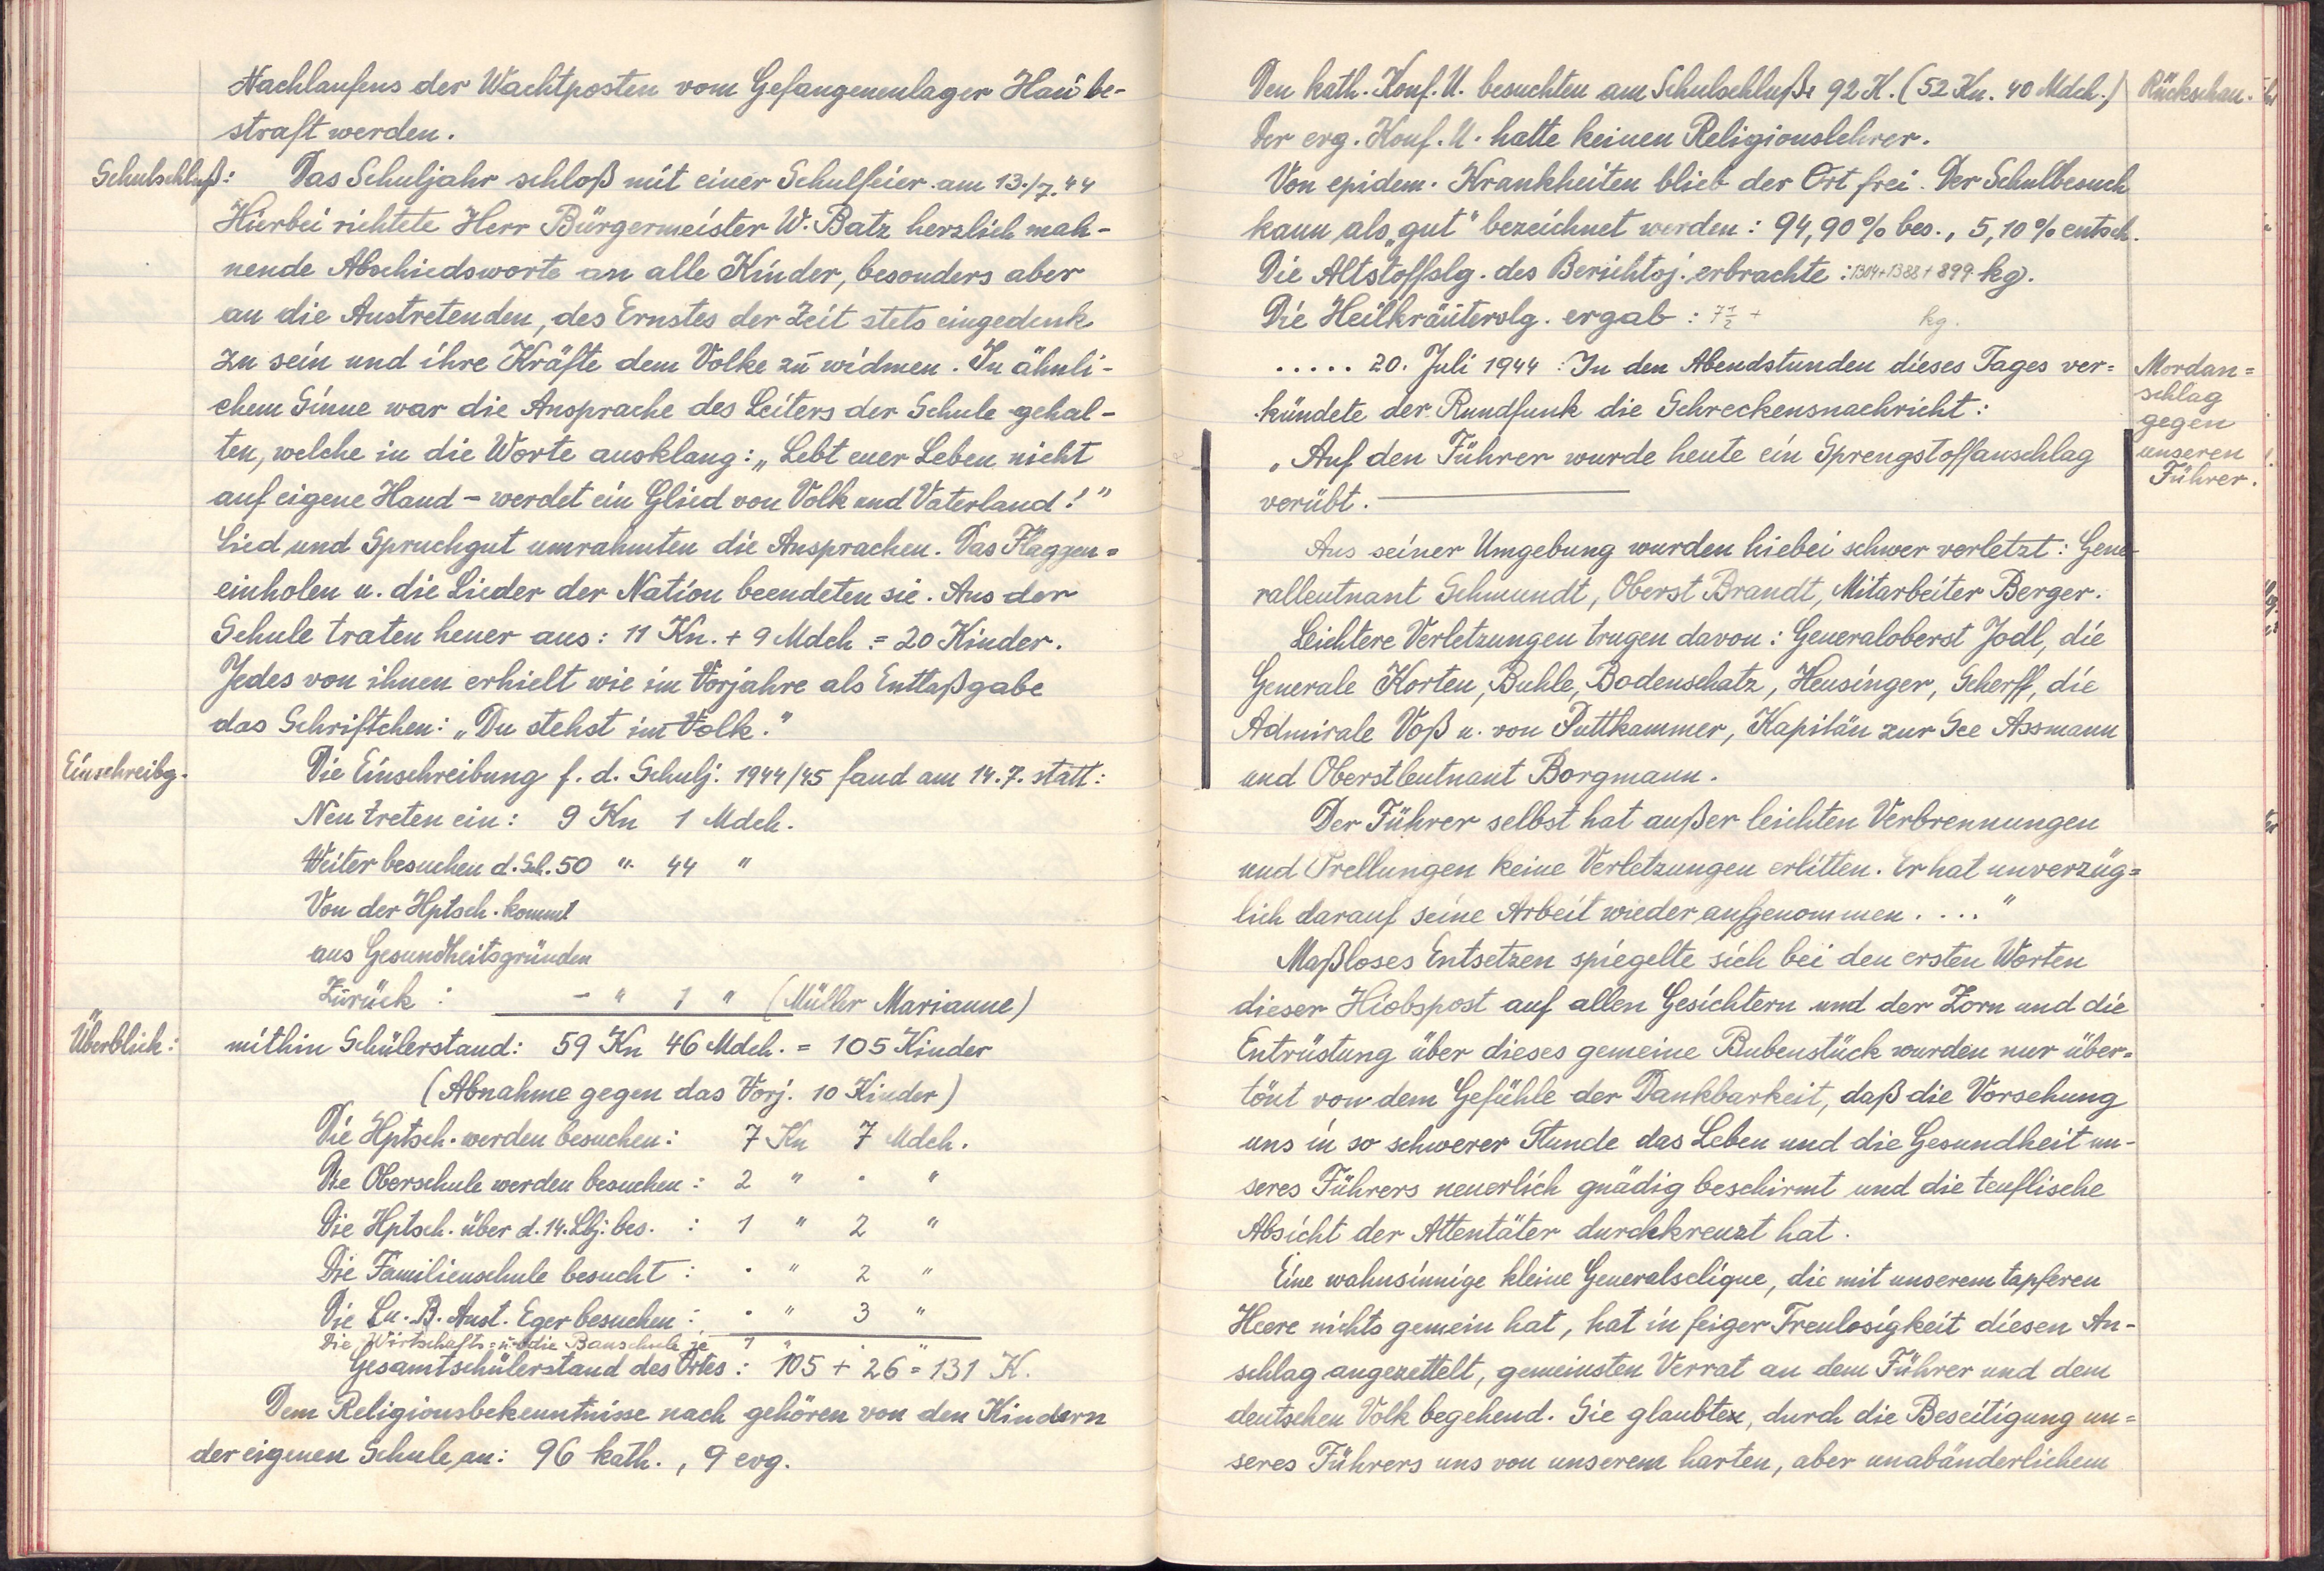 Nachlaufens der Wachtposten vom Gefangenenlager Hau be-
straft werden.
Schulschluß: Das Schuljahr schloß mit einer Schulfeier am 13./7.44
Hierbei richtete Herr Bürgermeister W. Batz herzlich mah-
nende Abschiedsworte an alle Kinder, besonders aber
an die Austretenden, des Ernstes der Zeit stets eingedenk
zu sein und ihre Kräfte dem Volke zu widmen. In ähnli-
chem Sinne war die Ansprache des Leiters der Schule gehal-
ten, welche in die Worte ausklang: „Lebt euer Leben nicht
auf eigene Hand - werdet ein Glied von Volk und Vaterland!"
Lied und Spruchgut umrahmten die Ansprachen. Das Flaggen=
einholen u. die Lieder der Nation beendeten sie. Aus der
Schule traten heuer aus: 11 Kn. + 9 Mdch = 20 Kinder.
Jedes von ihnen erhielt wie im Vorjahre als Entlaßgabe
das Schriftchen: „Du stehst im Volk."
Einschreibg. Die Einschreibung f. d. Schulj. 1944/45 fand am 14.7. statt:
Neu treten ein: 9 Kn 1 Mdch.
Weiter besuchen d. Sch. 50 " 44 "
Von der Hptsch. kommt
aus Gesundheitsgründen
Zurück: - " 1 " (Müller Marianne)
Überblick: mithin Schülerstand: 59 Kn 46 Mdch. = 105 Kinder
(Abnahme gegen das Vorj. 10 Kinder)
Die Hptsch. werden besuchen: 7 Kn 7 Mdch.
Die Oberschule werden besuchen: 2 " . "
Die Hptsch. über d. 14. Lbj. bes. : 1 " 2 "
Die Familienschule besucht: . " 2 "
Die Ln. B. Anst. Eger besuchen: . " 3 "
Die Wirtschafts= u. die Bauschule je 1 " . "
Gesamtschülerstand des Ortes: 105 + 26 = 131 K.
Dem Religionsbekenntnisse nach gehören von den Kindern
der eigenen Schule an: 96 kath., 9 evg.
Den kath. Konf. U. besuchten am Schulschluße 92 K. (52 Kn. 40 Mdch.) Rückschau.
Der evg. Konf. U. hatte keinen Religionslehrer.
Von epidem. Krankheiten blieb der Ort frei. Der Schulbesuch
kann als „gut" bezeichnet werden: 94,90% bes., 5,10% entsch.
Die Altstoffslg. des Berichtsj. erbrachte: 1304+1388+899 kg.
Die Heilkräuterslg. ergab: 7½ + kg.
..... 20. Juli 1944: In den Abendstunden dieses Tages ver=
kündete der Rundfunk die Schreckensnachricht:
Mordan=
schlag
gegen
unseren
Führer.
„Auf den Führer wurde heute ein Sprengstoffanschlag
verübt. —
Aus seiner Umgebung wurden hiebei schwer verletzt: Gene-
ralleutnant Schmundt, Oberst Brandt, Mitarbeiter Berger.
Leichtere Verletzungen trugen davon: Generaloberst Jodl, die
Generale Korten, Buhle, Bodenschatz, Heusinger, Scherff, die
Admirale Voß u. von Puttkammer, Kapitän zur See Assmann
und Oberstleutnant Borgmann.
Der Führer selbst hat außer leichten Verbrennungen
und Prellungen keine Verletzungen erlitten. Er hat unverzüg=
lich darauf seine Arbeit wieder aufgenommen...."
Maßloses Entsetzen spiegelte sich bei den ersten Worten
dieser Hiobspost auf allen Gesichtern und der Zorn und die
Entrüstung über dieses gemeine Bubenstück wurden nur über=
tönt von dem Gefühle der Dankbarkeit, daß die Vorsehung
uns in so schwerer Stunde das Leben und die Gesundheit un-
seres Führers neuerlich gnädig beschirmt und die teuflische
Absicht der Attentäter durchkreuzt hat.
Eine wahnsinnige kleine Generalsclique, die mit unserem tapferen
Heere nichts gemein hat, hat in feiger Treulosigkeit diesen An-
schlag angezettelt, gemeinsten Verrat an dem Führer und dem
deutschen Volk begehend. Sie glaubten, durch die Beseitigung un=
seres Führers uns von unserem harten, aber unabänderlichem